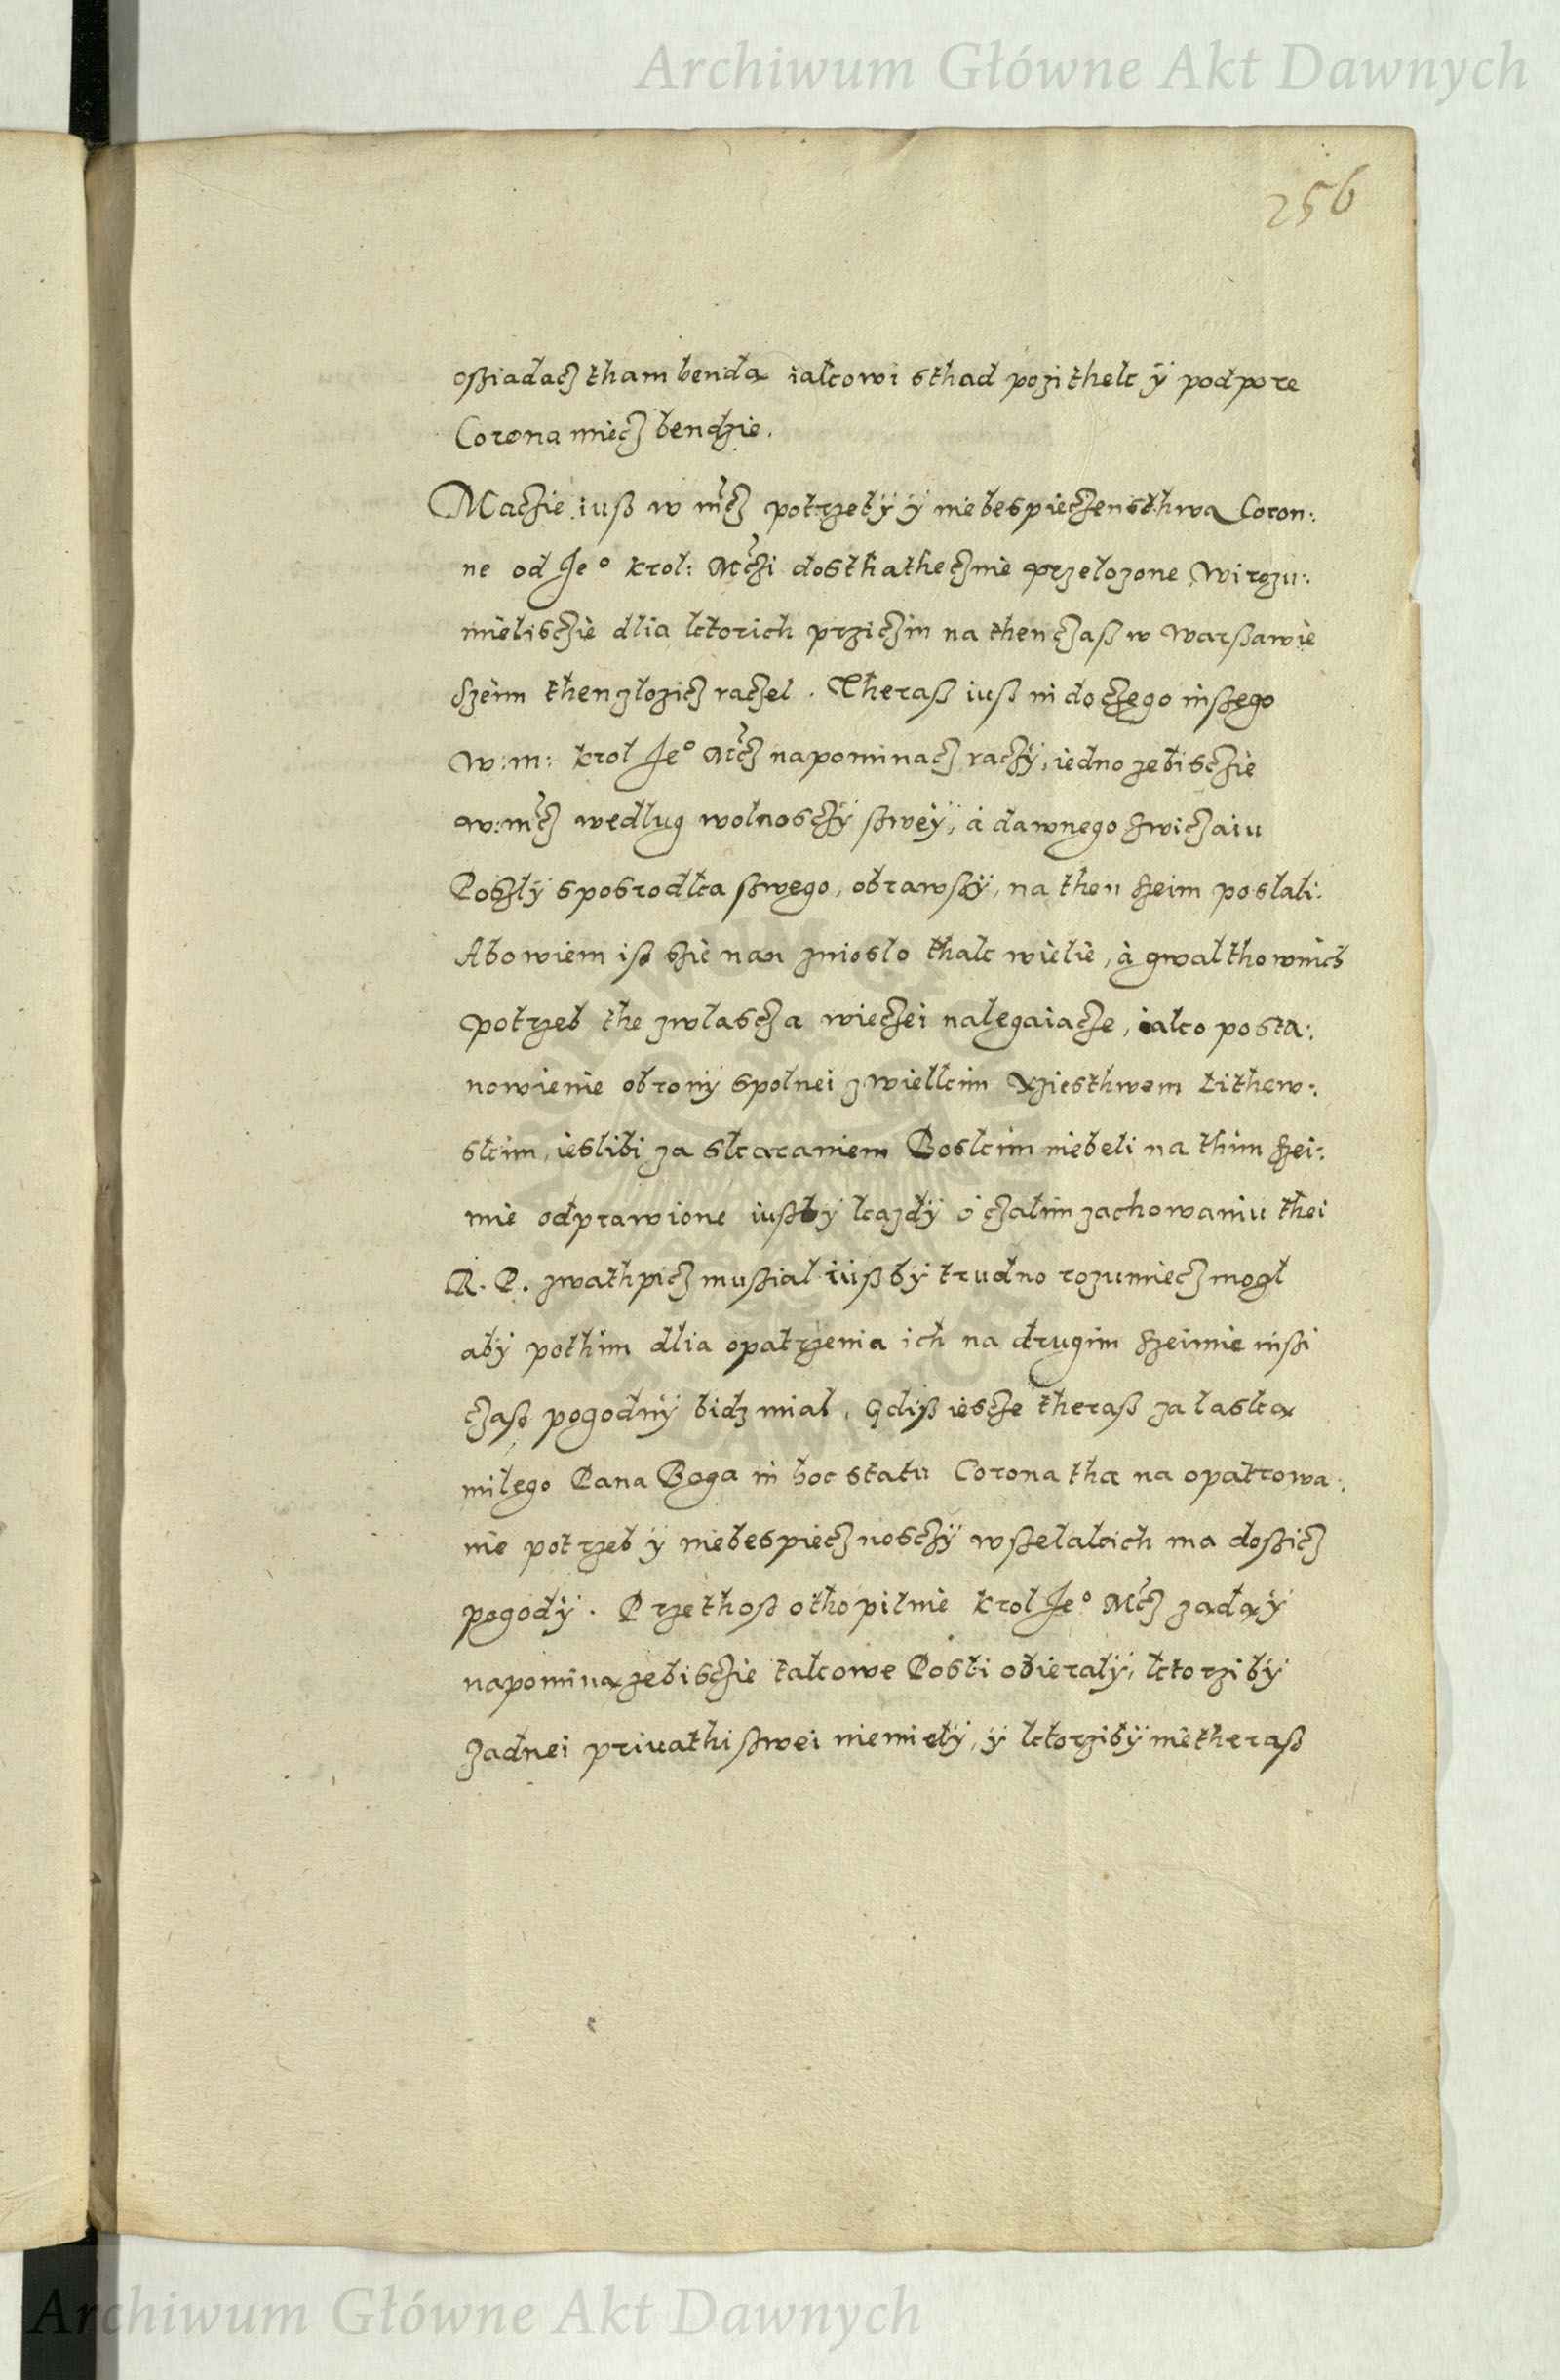 Archiwum Główne Akt Dawnych
256
osziadacz tham benda iakowi sthad pozithek ÿ podpore
Corona miecz bendzie.
Maczie iusz w mcz potrzebÿ ÿ niebespieczensthwa Coron:
ne od Je° krol: Mczi dosthathecznie przelozone, wirozu:
mielisczie dlia ktorich prziczin na then czasz w Warszawie
Szeim then zlozicz raczel. Therasz iusz ni do czego inszego
w:m: krol Je° Mcz napominacz raczÿ, iedno zebisczie
w:mcz wedlug wolnosczÿ szweÿ, a dawnego zwiczaiu
Poszlÿ sposrodka szwego, obrawszÿ, na then szeim poslali.
Abowiem isz szie nan znioslo thak wielie, a gwalthownich
potrzeb the zwlascza wieczei nalegaiacze, iako posta:
nowienie obronÿ spolnei z wielkim Xziesthwem Lithew:
skim, ieslibi za skaraniem Boskim niebeli na thim szei:
mie odprawione iuszbÿ kazdÿ o czalim zachowaniu thei
R. P. zwathpicz muszial iusz bÿ trudno rozumiecz mogl
abÿ pothim dlia opatrzenia ich na drugim szeimie inszi
czasz pogodnÿ bidz mial, Gdisz iescze therasz za laska
milego Pana Boga in hoc statu Corona tha na opatrowa:
nie potrzeb ÿ niebespiecznosczÿ wszelakich ma doszicz
pogodÿ. Przethosz otho pilnie krol Je° Mcz zada ÿ
napomina zebisczie takowe Posli obieralÿ, ktorzibÿ
zadnei priuathi szwei niemielÿ, ÿ ktorzibÿ nietherasz
Archiwum Główne Akt Dawnych